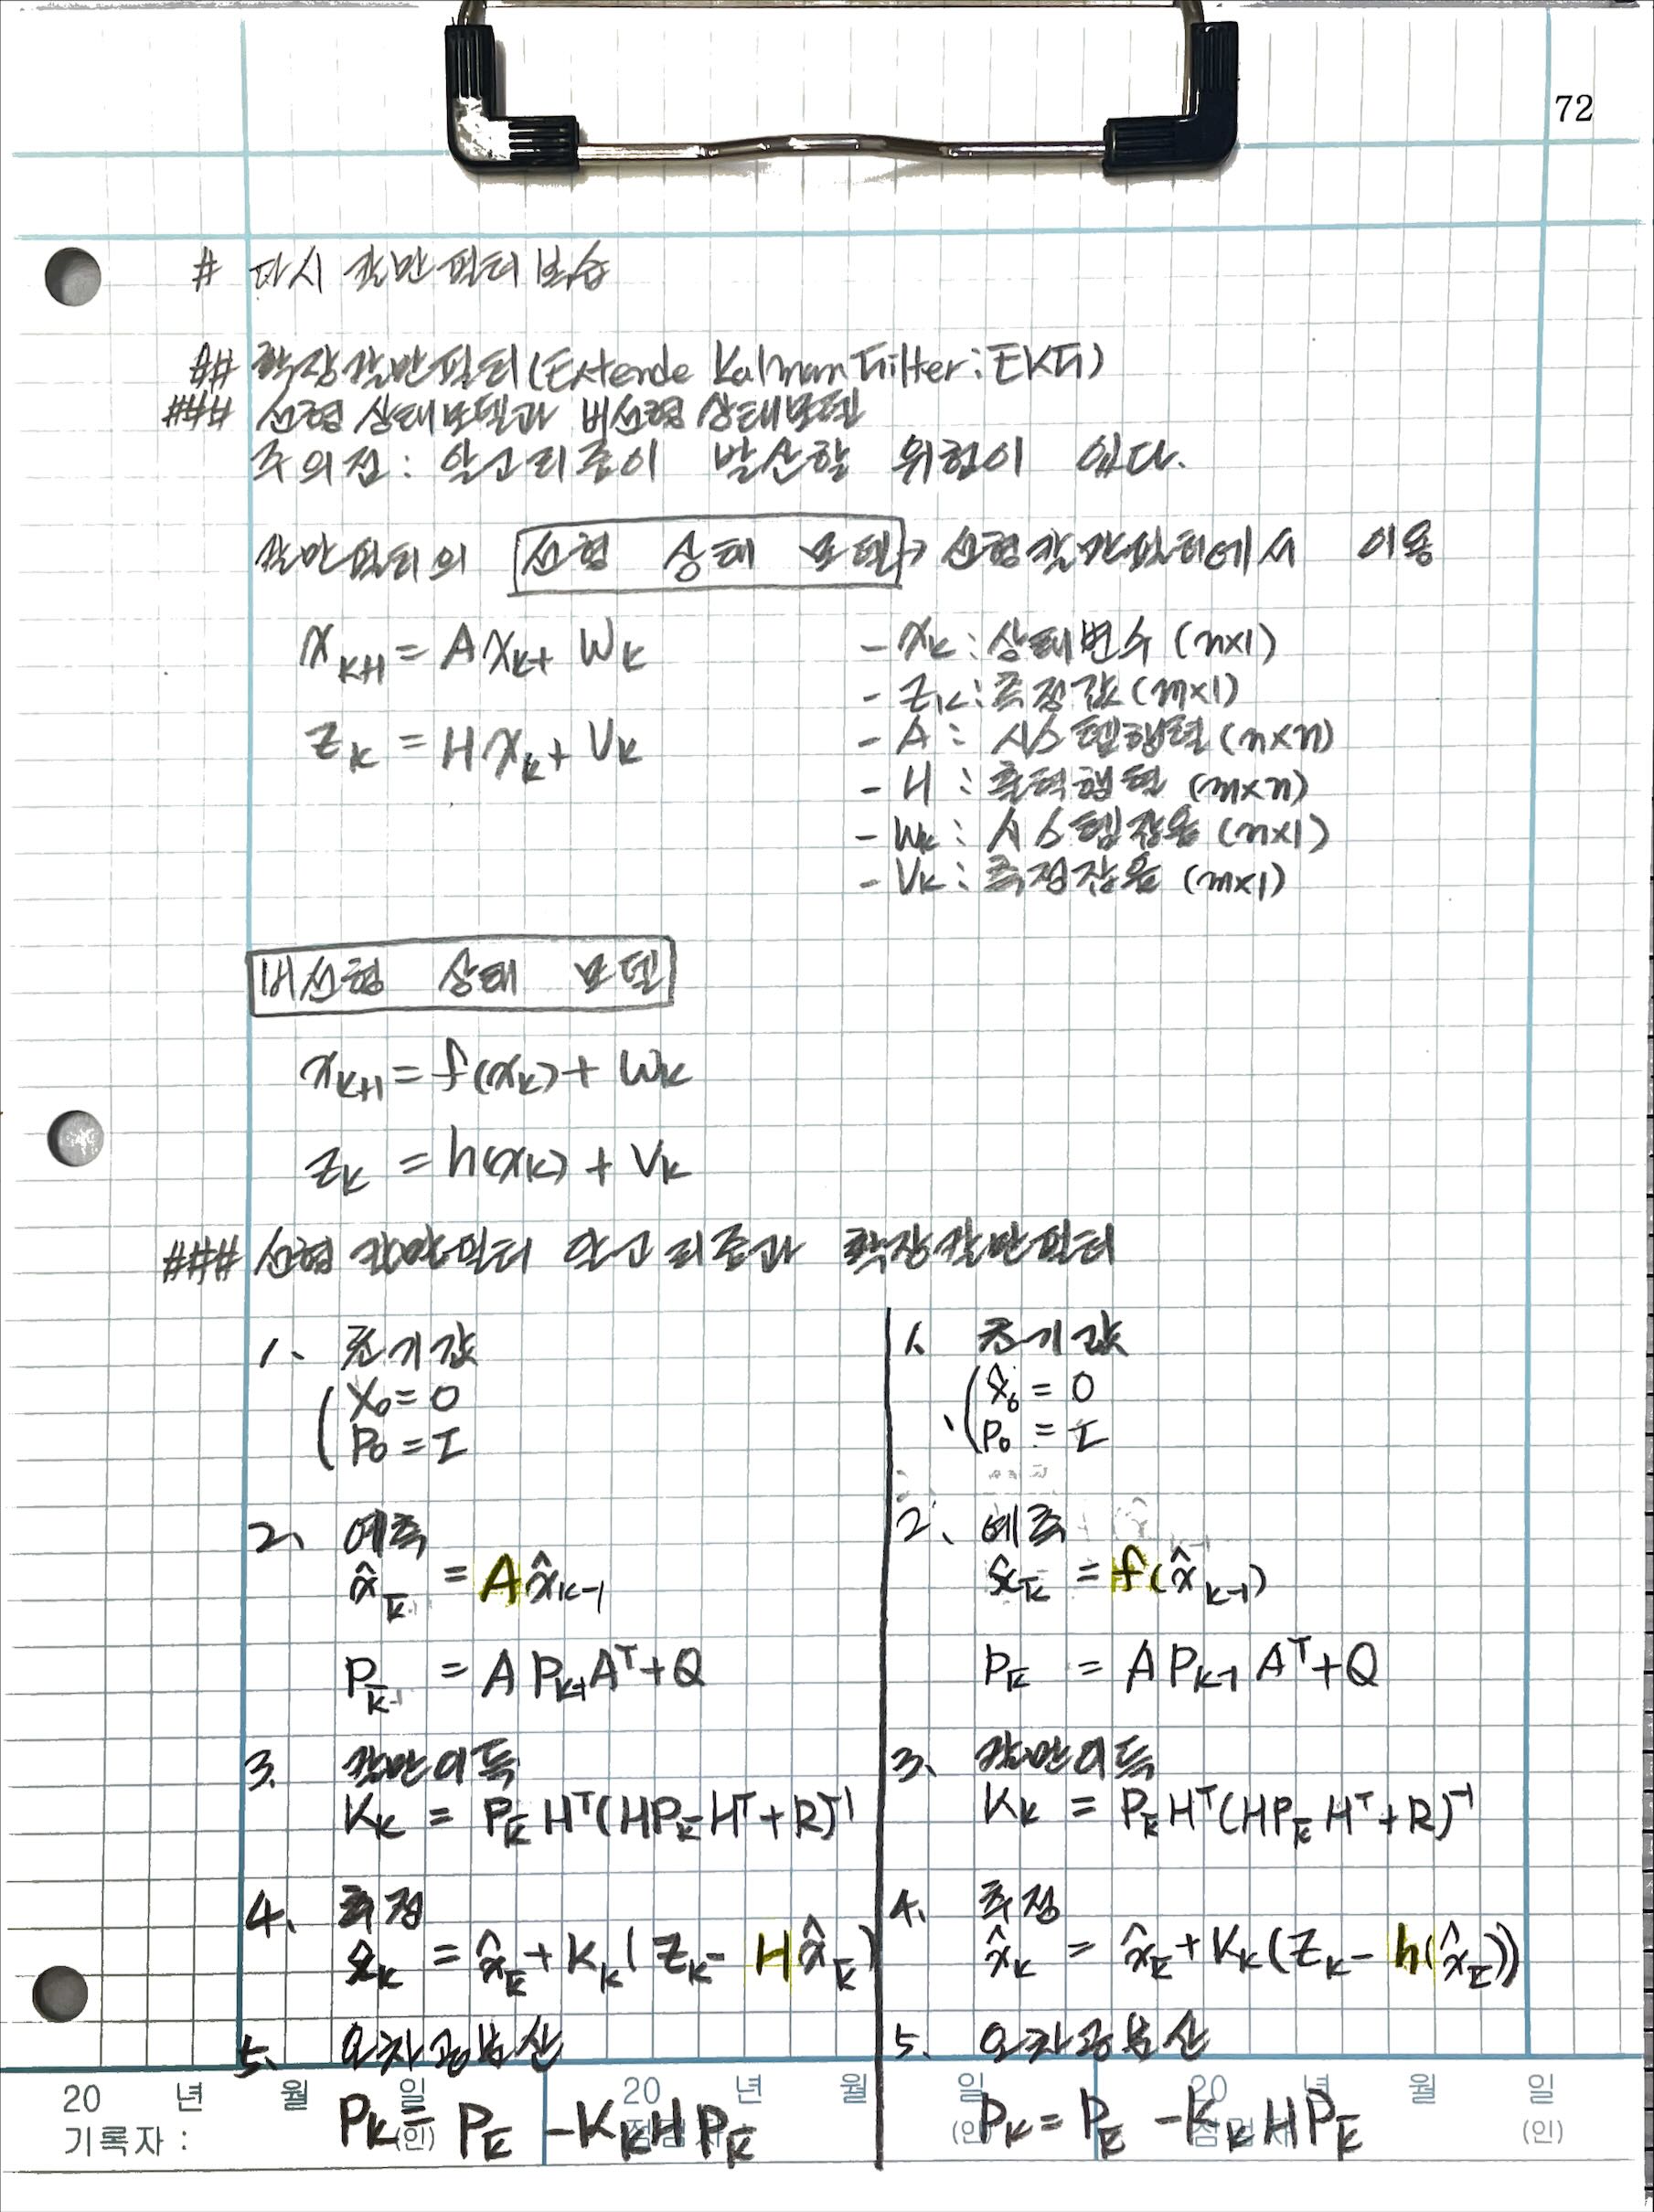 72
# 다시 칼만필터 복습
## 확장칼만필터(Extende Kalman Filter: EKF)
### 선형 상태모델과 비선형 상태모델
주의점: 알고리즘이 발산할 위험이 있다.
칼만필터의 선형 상태 모델 → 선형칼만필터에서 이용
x_{k+1} = Ax_k + w_k
z_k = Hx_k + v_k
- x_k: 상태변수 (n×1)
- z_k: 측정값 (m×1)
- A: 시스템행렬 (n×n)
- H: 출력행렬 (m×n)
- w_k: 시스템잡음 (n×1)
- v_k: 측정잡음 (m×1)
비선형 상태 모델
x_{k+1} = f(x_k) + w_k
z_k = h(x_k) + v_k
### 선형 칼만필터 알고리즘과 확장칼만필터
1. 초기값
x_0 = 0
P_0 = I
2. 예측
x̂_k̄ = Ax̂_{k-1}
P_k̄ = A P_{k-1} A^T + Q
3. 칼만이득
K_k = P_k̄ H^T (H P_k̄ H^T + R)^{-1}
4. 추정
x̂_k = x̂_k̄ + K_k ( z_k - H x̂_k̄ )
5. 오차공분산
P_k = P_k̄ - K_k H P_k̄
1. 초기값
x̂_0 = 0
P_0 = I
2. 예측
x̂_k̄ = f(x̂_{k-1})
P_k̄ = A P_{k-1} A^T + Q
3. 칼만이득
K_k = P_k̄ H^T (H P_k̄ H^T + R)^{-1}
4. 추정
x̂_k = x̂_k̄ + K_k (z_k - h(x̂_k̄))
5. 오차공분산
P_k = P_k̄ - K_k H P_k̄
20 년 월 일 20 년 월 일 20 년 월 일
기록자 : (인) (인) (인)